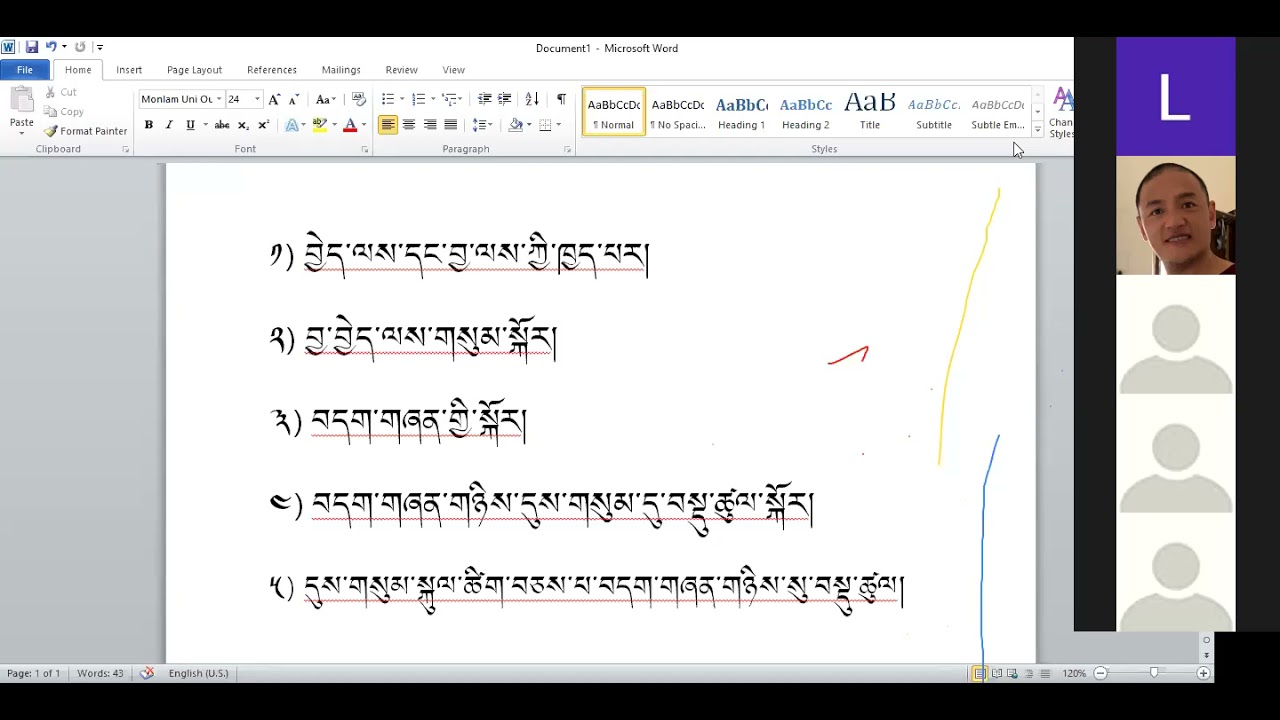 Document1 - Microsoft Word
File Home Insert Page Layout References Mailings Review View
Cut
Copy
Paste
Format Painter
Clipboard
Monlam Uni Ou 24
Font
Paragraph
AaBbCcDc AaBbCcDc AaBbC AaBbCc AaB AaBbCc. AaBbCcDc
¶ Normal ¶ No Spaci... Heading 1 Heading 2 Title Subtitle Subtle Em...
Chan
Styles
Styles
L
༡) བྱེད་ལས་དང་བྱ་ལས་ཀྱི་ཁྱད་པར།
༢) བྱ་བྱེད་ལས་གསུམ་སྐོར།
༣) བདག་གཞན་གྱི་སྐོར།
༤) བདག་གཞན་གཉིས་དུས་གསུམ་དུ་བསྡུ་ཚུལ་སྐོར།
༥) དུས་གསུམ་སྐུལ་ཚིག་བཅས་པ་བདག་གཞན་གཉིས་སུ་བསྡུ་ཚུལ།
Page: 1 of 1 Words: 43 English (U.S.) 120%